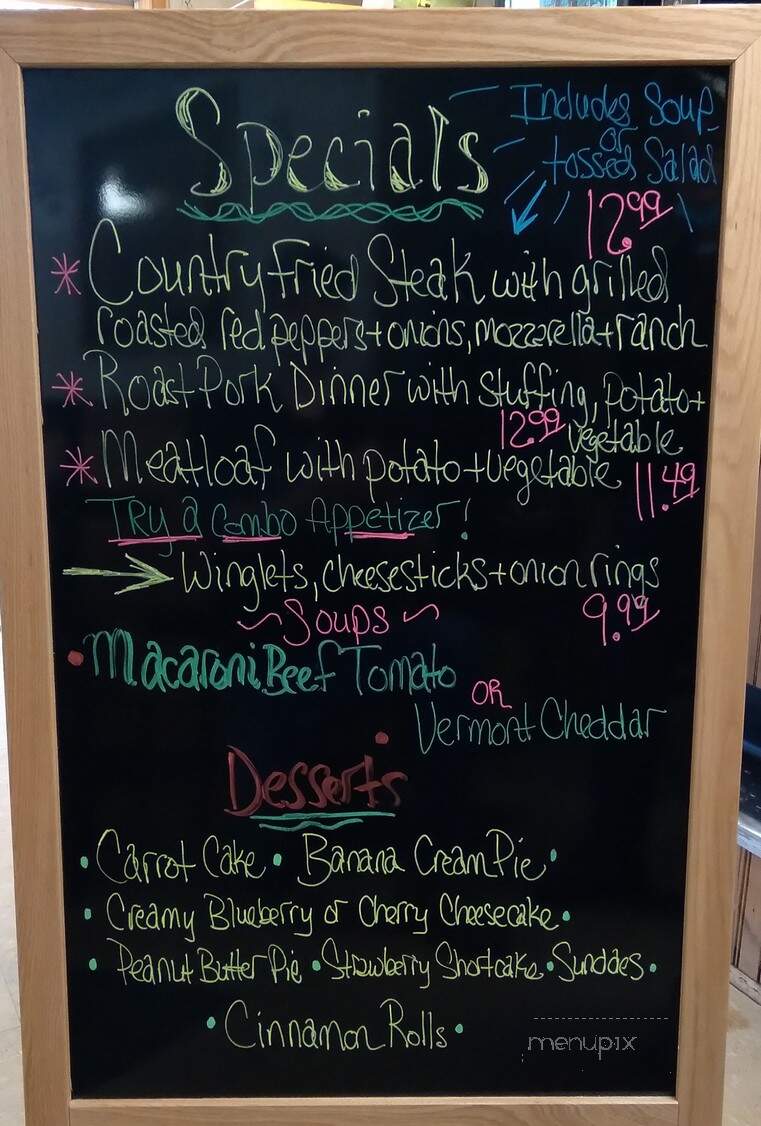 Specials
Includes Soup
or
tossed Salad
12.99
* Country Fried Steak with grilled
roasted red peppers + onions, mozzarella + ranch
* Roast Pork Dinner with stuffing, potato +
12.99 vegetable
* Meatloaf with potato + vegetable 11.49
Try a Combo Appetizer!
→ Winglets, cheesesticks + onion rings
9.99
~ Soups ~
• Macaroni Beef Tomato
OR
• Vermont Cheddar
Desserts
• Carrot Cake • Banana Cream Pie •
• Creamy Blueberry or Cherry Cheesecake •
• Peanut Butter Pie • Strawberry Shortcake • Sundaes •
• Cinnamon Rolls •
menupix